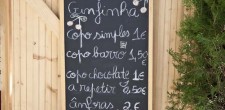 Ginfinha
copo simples 1€
copo barro 1,50€
copo chocolate 1€
a repetir 0,50€
Ânforas 2€